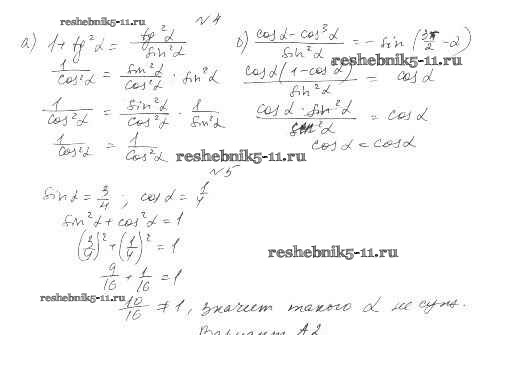 reshebnik5-11.ru
№4
а) 1 + tg²α = tg²α / sin²α
1/cos²α = sin²α/cos²α · sin²α
1/cos²α = sin²α/cos²α · 1/sin²α
1/cos²α = 1/cos²α
б) (cosα - cos³α)/sin²α = - sin(3π/2 - α)
reshebnik5-11.ru
cosα(1 - cos²α)/sin²α = cosα
cosα · sin²α / sin²α = cosα
cosα = cosα
reshebnik5-11.ru
№5
sinα = 3/4 ; cosα = 1/4
sin²α + cos²α = 1
(3/4)² + (1/4)² = 1
reshebnik5-11.ru
9/16 + 1/16 = 1
reshebnik5-11.ru
10/16 ≠ 1, значит такого α не сущ.
Вариант А2